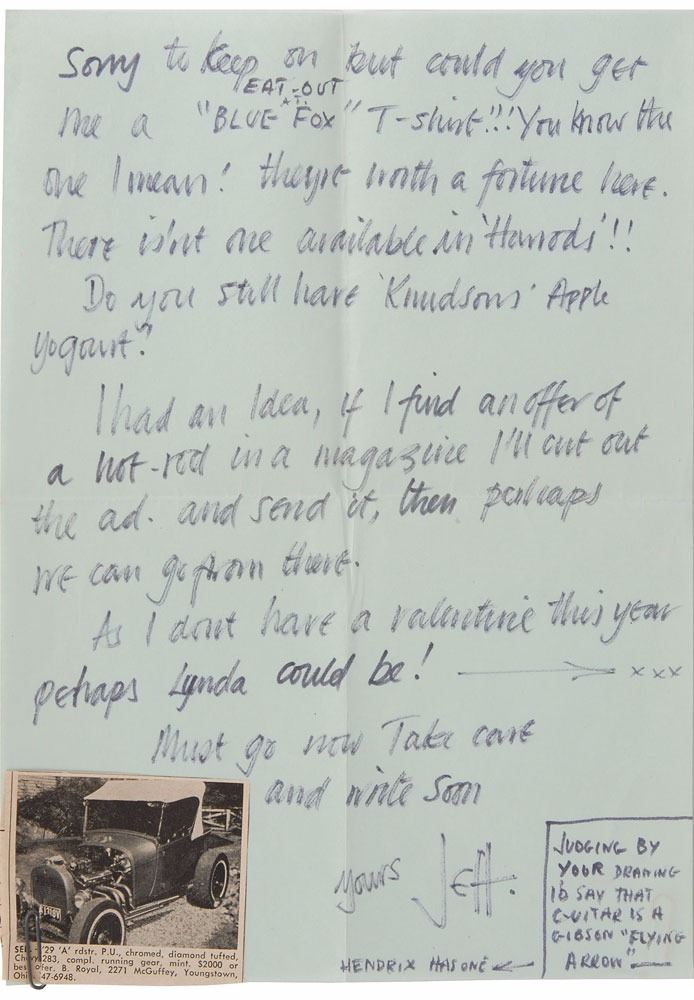 Sorry to keep on but could you get
me a "BLUE EAT-OUT FOX" T-shirt!!! You know the
one I mean! theyre worth a fortune here.
There is'nt one available in 'Harrods'!!
Do you still have 'Knudsons' Apple
Yogourt?
I had an Idea, if I find an offer of
a hot-rod in a magazine I'll cut out
the ad. and send it, then perhaps
we can go from there.
As I dont have a valentine this year
perhaps Lynda could be! xxx
Must go now Take care
and write soon
yours Jeff.
JUDGING BY
YOUR DRAWING
I'D SAY THAT
GUITAR IS A
GIBSON "FLYING
ARROW"
HENDRIX HAS ONE
'29 'A' rdstr. P.U., chromed, diamond tufted,
283, compl. running gear, mint. $2000 or
offer. B. Royal, 2271 McGuffey, Youngstown,
Ohio 47-6948.